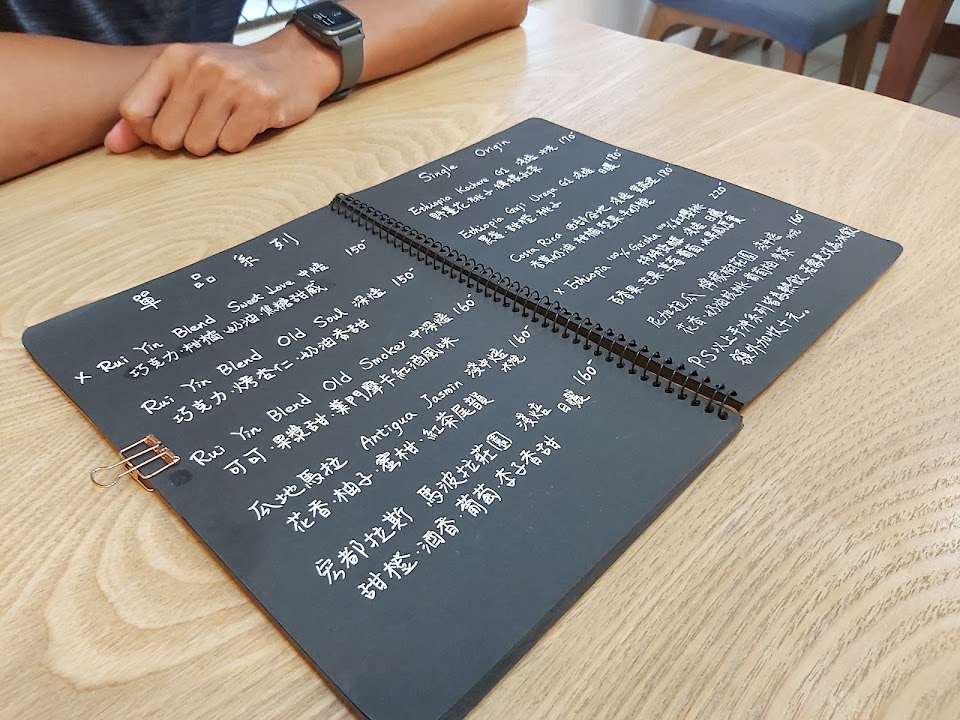 單品系列
x Rui Yin Blend Sweet Love 中焙 150
巧克力．柑橘．奶油．焦糖甜感
Rui Yin Blend Old Soul 深焙 150
巧克力．烤杏仁．奶油香甜
Rui Yin Blend Old Smoker 中深焙 160
可可．果漿甜．葉門摩卡紅酒風味
瓜地馬拉 Antigua Jasmin 淺中焙 水洗 160
花香．柚子．蜜柑．紅茶尾韻
宏都拉斯 馬波拉莊園 淺焙 日曬 160
甜橙．酒香．葡萄．李子香甜
Single Origin
Ethiopia Kochere G1 淺焙 水洗 170
野薑花．桃子．檸檬紅茶
Ethiopia Guji Uraga G1 淺焙 日曬 180
Costa Rica 淺焙 180
x Ethiopia 100% Geisha 淺焙 日曬 220
百香果．芒果．草莓．葡萄．水果
尼加拉瓜 檸檬樹莊園 淺中焙 水洗 160
花香．奶油
P.S 以上手沖系列皆為熱飲，若需更改為冰飲
額外加收十元。